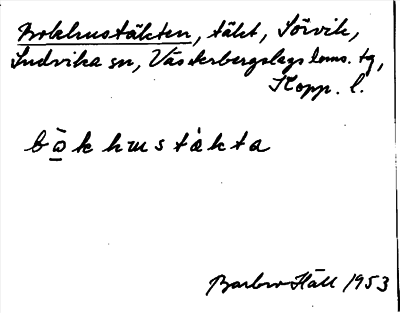 Bokhustäkten, täkt, Sörvik,
Ludvika sn, Västerbergslags doms. tg,
Kopp. l.
bὰkhustὰkta
Barbro Häll 1953